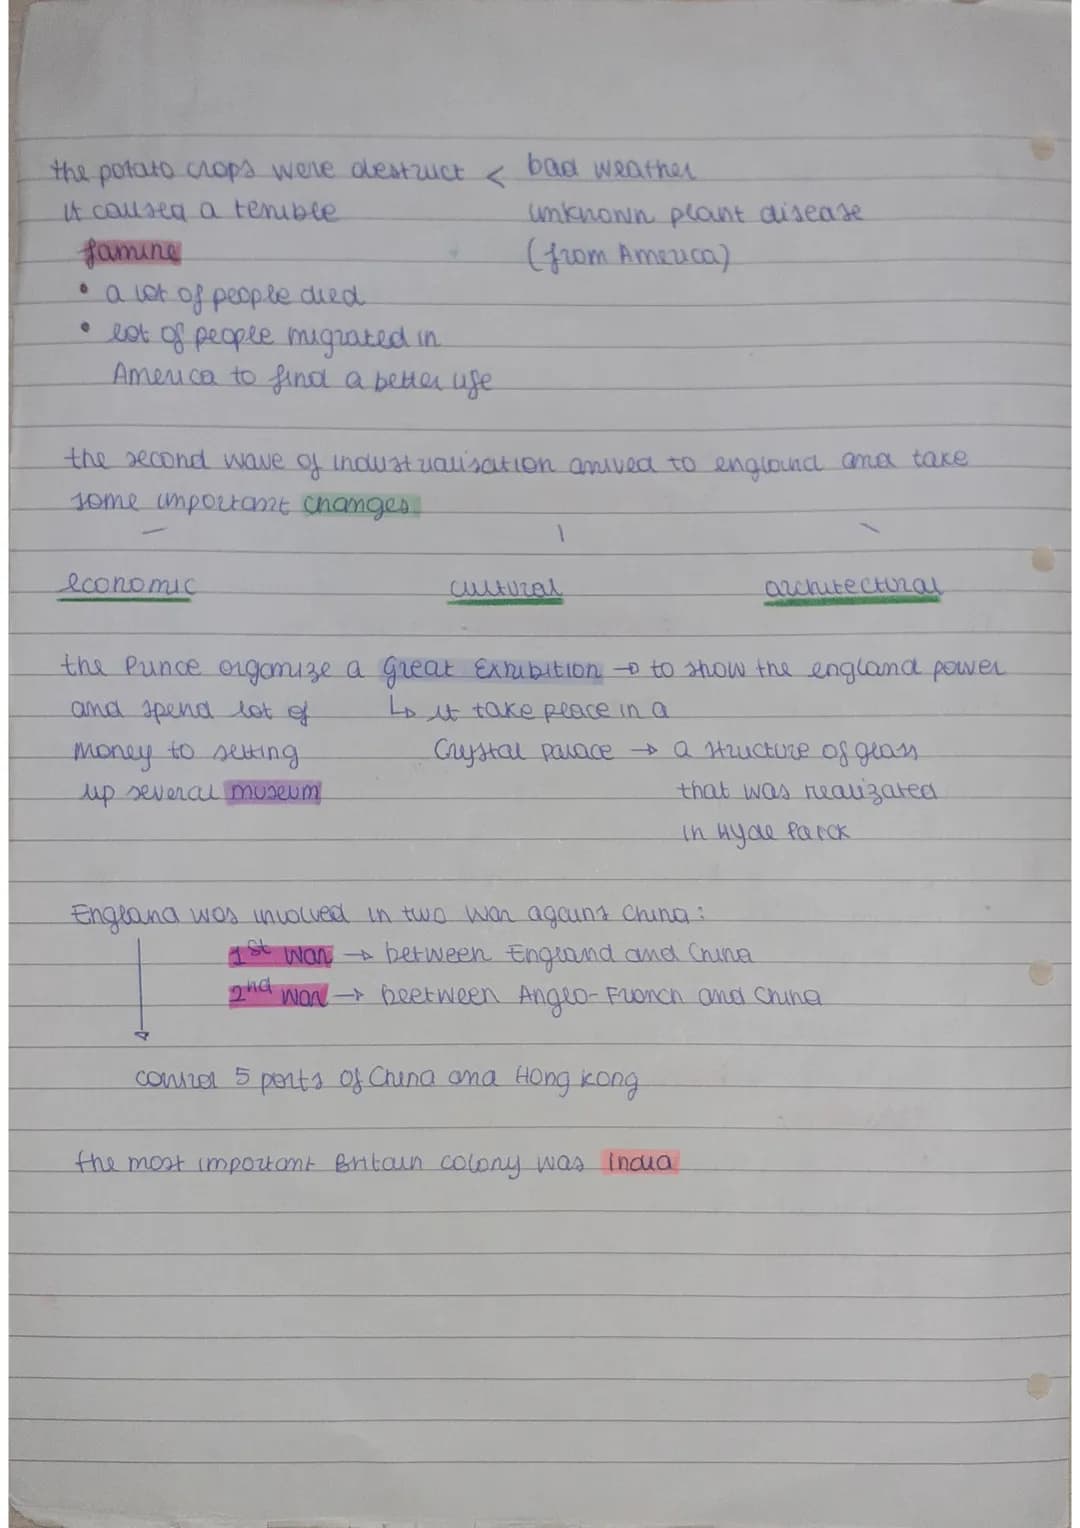 the potato crops were destruct < bad weather
it caused a terrible unknown plant disease
famine (from America)
• a lot of people died
• lot of people migrated in
America to find a better life
the second wave of industrialisation arrived to england and take
some important changes
economic cultural architectural
the Prince organize a Great Exhibition → to show the england power
and spend lot of ↳ it take place in a
money to setting Crystal palace → a structure of glass
up several museum that was realizated
in Hyde Parck
England was involved in two war against China:
1st war → between England and China
2nd war → beetween Anglo-French and China
control 5 ports of China and Hong kong
the most important Britain colony was India